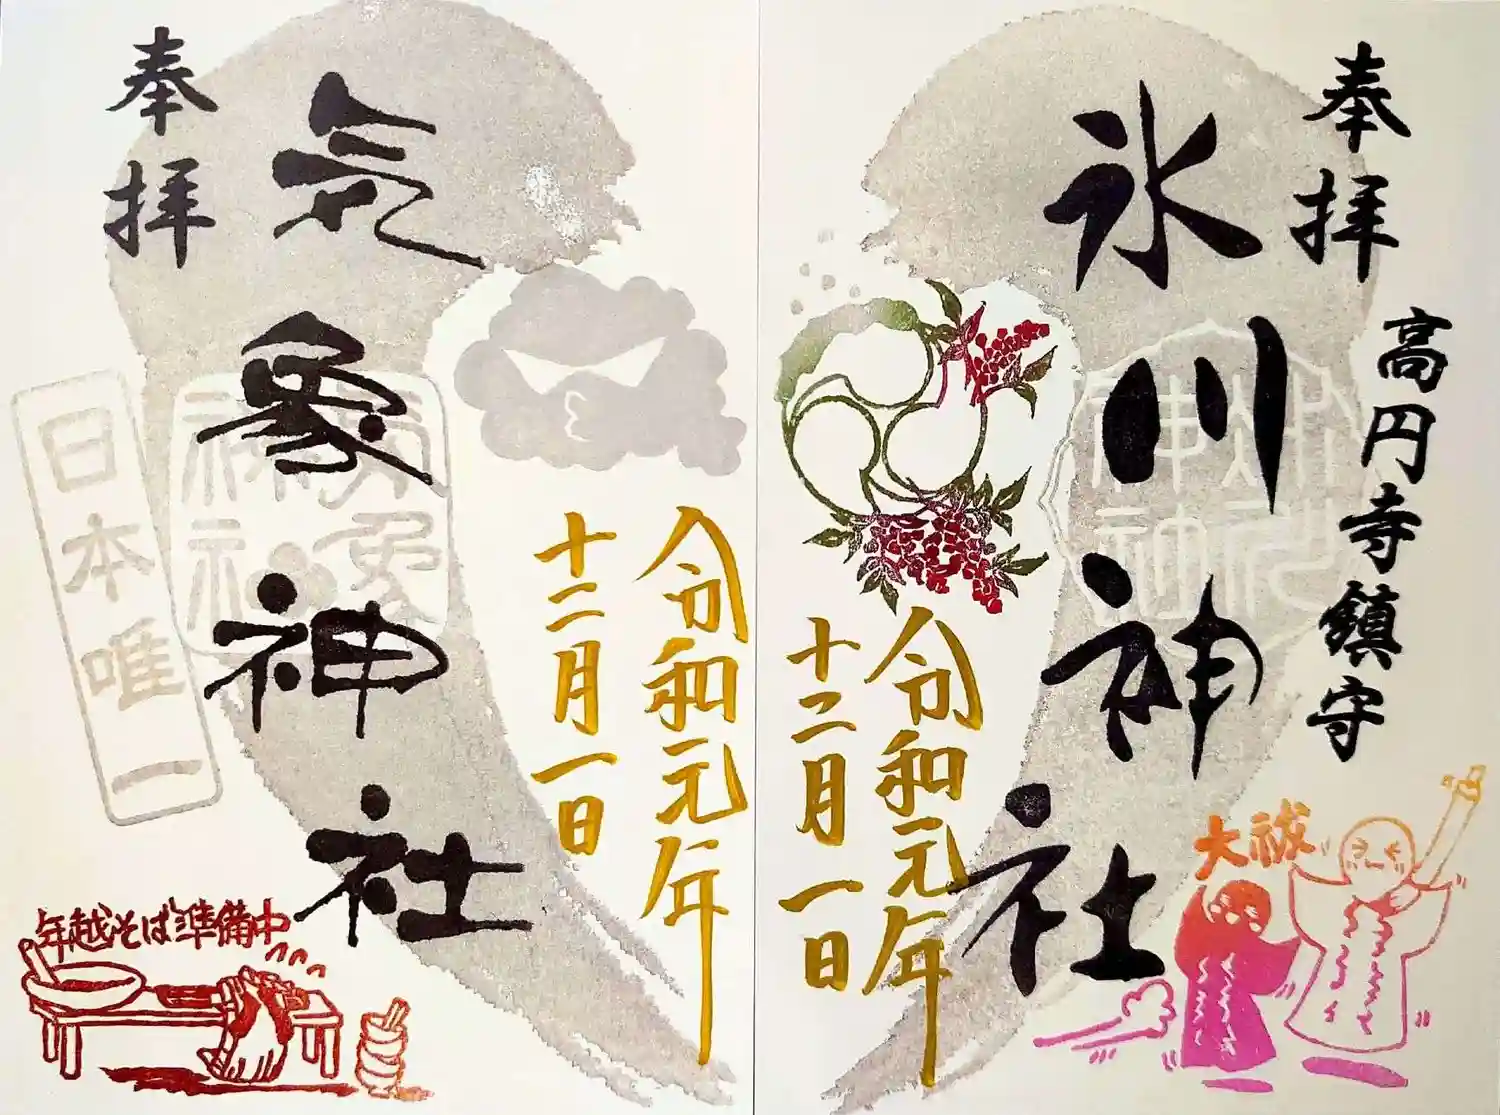 奉拝
高円寺鎮守
氷川神社
令和元年
十二月一日
大祓
令和元年
十二月一日
気象神社
奉拝
日本唯一
年越そば準備中